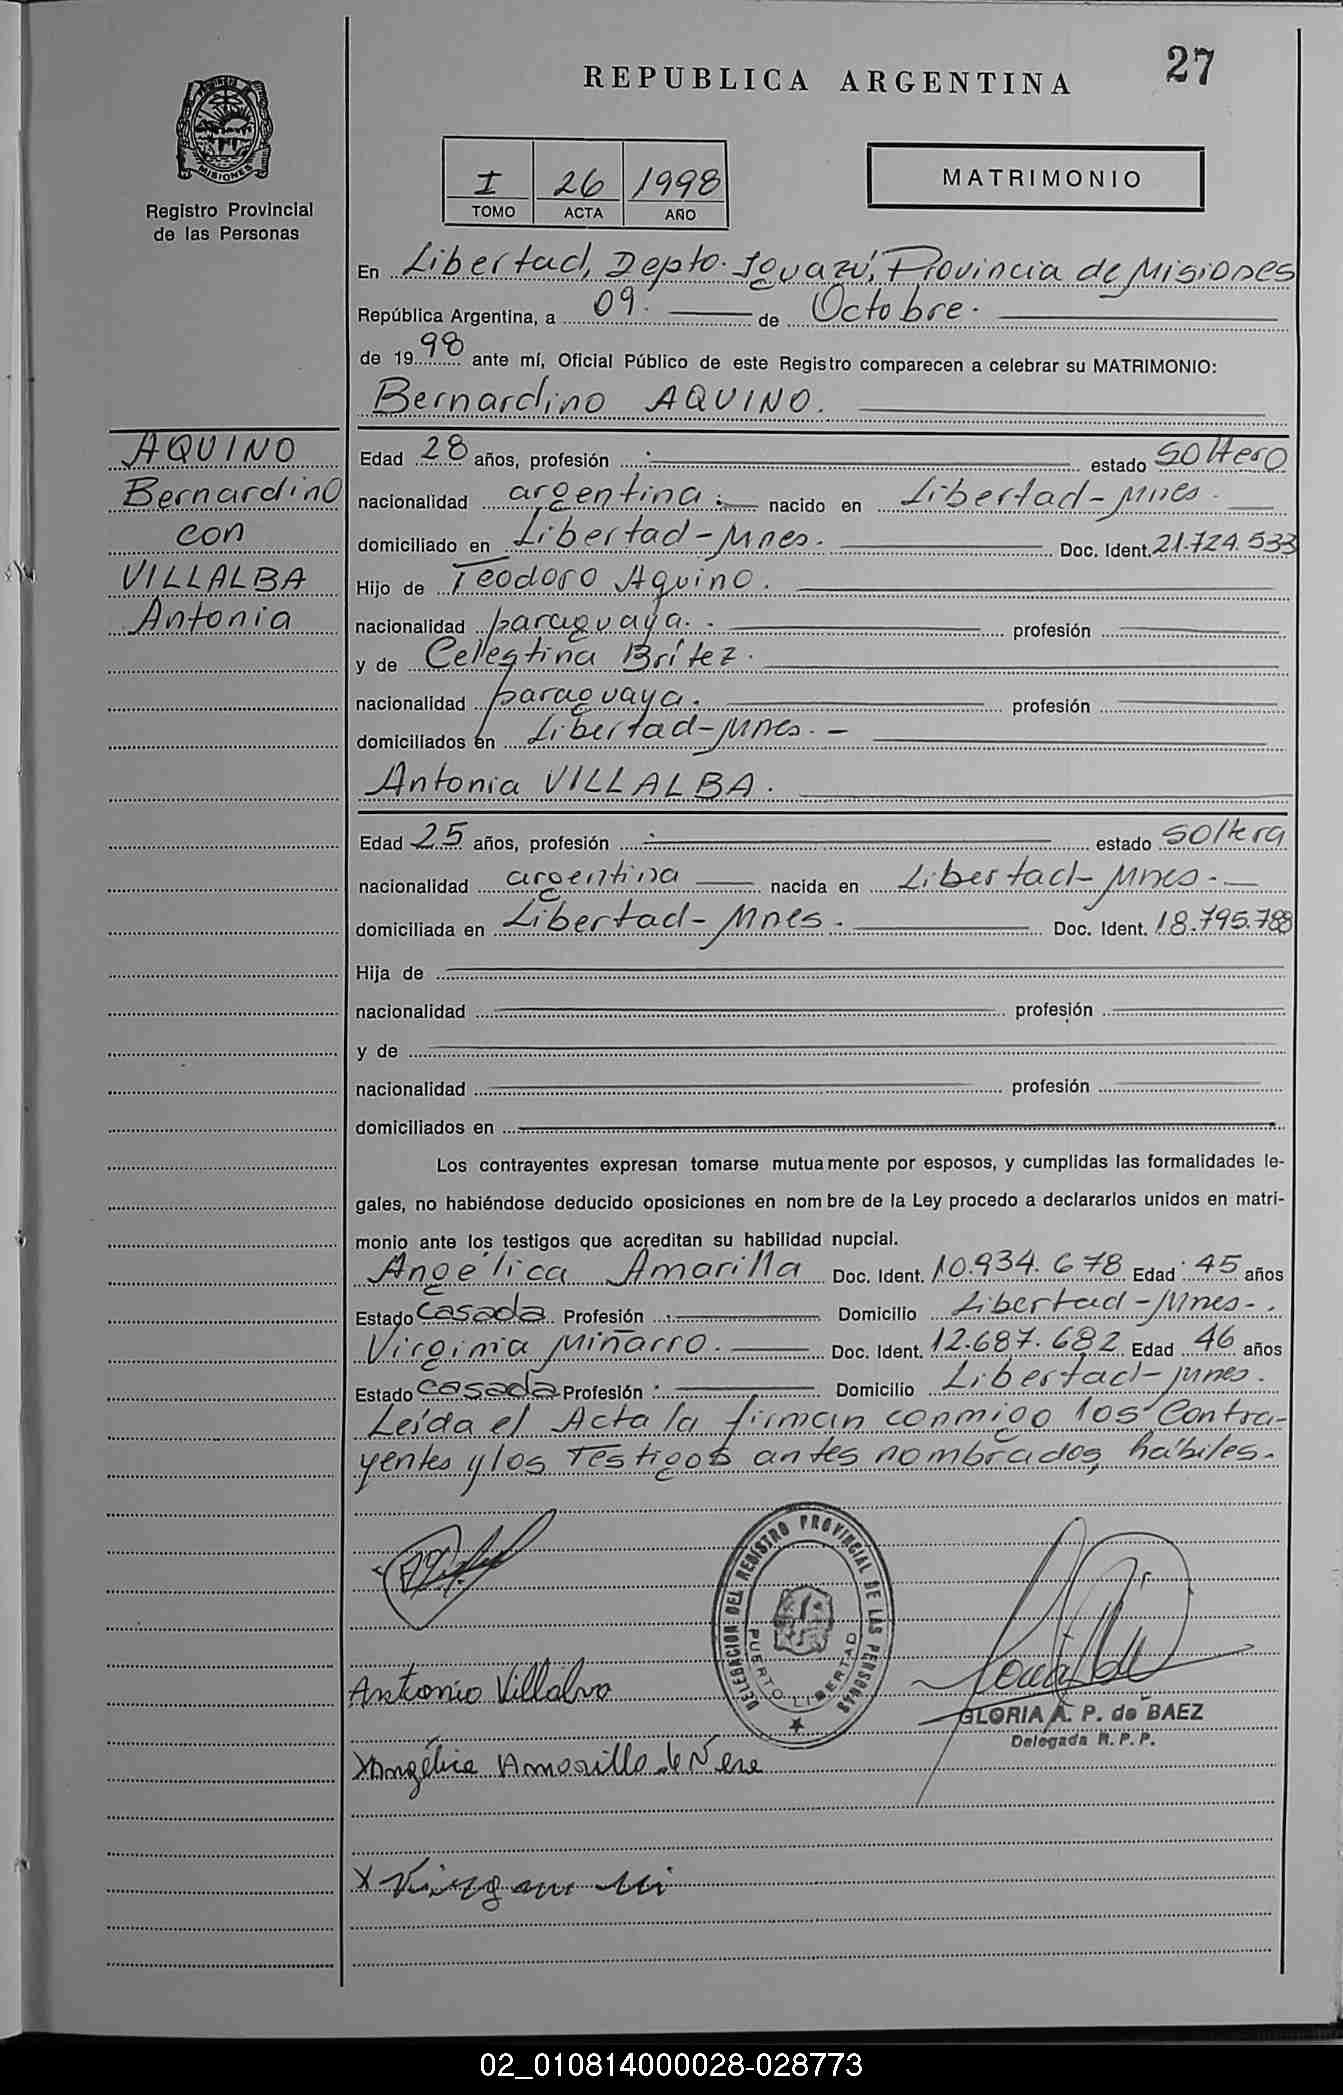 27
REPUBLICA ARGENTINA
MISIONES
Registro Provincial
de las Personas
I 26 1998
TOMO ACTA AÑO
MATRIMONIO
En Libertad, Depto. Iguazú, Provincia de Misiones
República Argentina, a 09. de Octubre.
de 1998 ante mí, Oficial Público de este Registro comparecen a celebrar su MATRIMONIO:
Bernardino AQUINO.
AQUINO
Bernardino
con
VILLALBA
Antonia
Edad 28 años, profesión estado soltero
nacionalidad argentina. nacido en Libertad-Mnes.
domiciliado en Libertad-Mnes. Doc. Ident. 21.724.533
Hijo de Teodoro Aquino.
nacionalidad paraguaya. profesión
y de Celestina Brítez.
nacionalidad paraguaya. profesión
domiciliados en Libertad-Mnes.-
Antonia VILLALBA.
Edad 25 años, profesión estado soltera
nacionalidad argentina nacida en Libertad-Mnes.
domiciliada en Libertad-Mnes. Doc. Ident. 18.795.788
Hija de
nacionalidad profesión
y de
nacionalidad profesión
domiciliados en
Los contrayentes expresan tomarse mutuamente por esposos, y cumplidas las formalidades le-
gales, no habiéndose deducido oposiciones en nombre de la Ley procedo a declararlos unidos en matri-
monio ante los testigos que acreditan su habilidad nupcial.
Angélica Amarilla Doc. Ident. 10.934.678 Edad 45 años
Estado casada Profesión Domicilio Libertad-Mnes-.
Virginia Miñarro. Doc. Ident. 12.687.682 Edad 46 años
Estado casada Profesión Domicilio Libertad-Mnes.
Leída el Acta la firman conmigo los Contra-
yentes y los Testigos antes nombrados, hábiles.
DELEGACION DEL REGISTRO PROVINCIAL DE LAS PERSONAS
PUERTO LIBERTAD
Antonia Villalva
GLORIA A. P. de BAEZ
Delegada R. P. P.
X Angélica Amarilla de
X
02_010814000028-028773